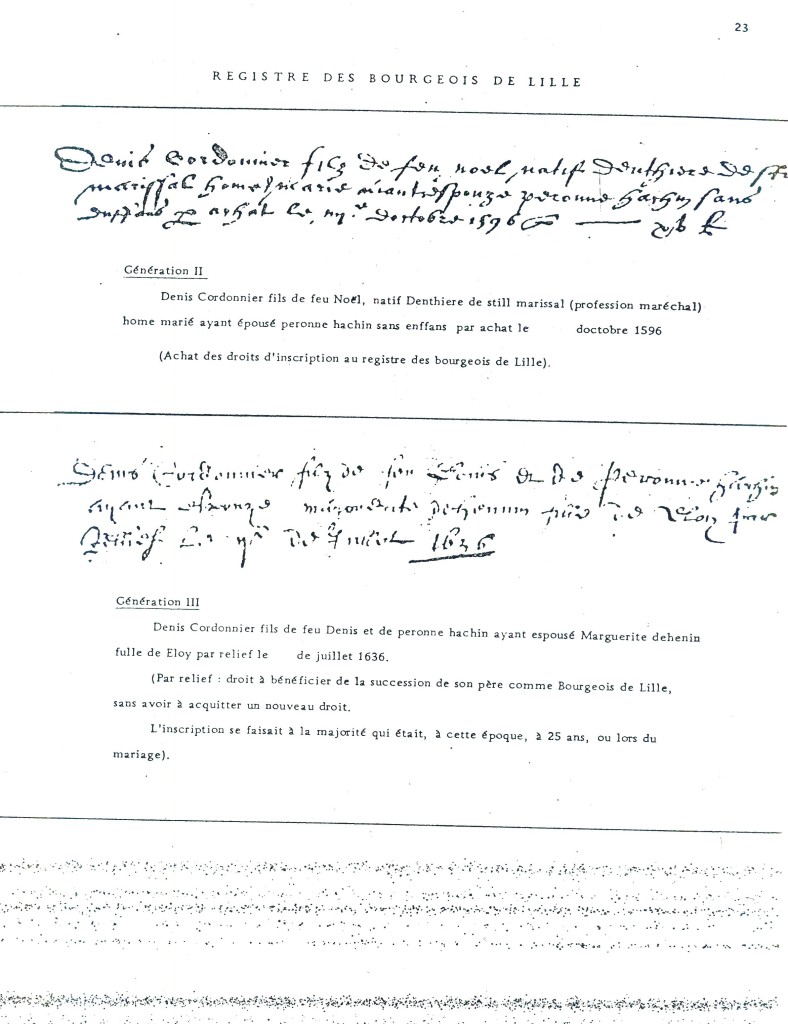 23
REGISTRE DES BOURGEOIS DE LILLE
Denis Cordonnier filz de feu noel, natif Denthiere de
marissal home marie aiant espouze peronne hachin sans
enffans achat le doctobre 1596
Génération II
Denis Cordonnier fils de feu Noël, natif Denthiere de still marissal (profession maréchal)
home marié ayant épousé peronne hachin sans enffans par achat le doctobre 1596
(Achat des droits d'inscription au registre des bourgeois de Lille).
Denis Cordonnier filz de feu Denis et de Peronne hachin
ayant espouze de Eloy par
Relief Le de Juillet 1636
Génération III
Denis Cordonnier fils de feu Denis et de peronne hachin ayant espousé Marguerite dehenin
fulle de Eloy par relief le de juillet 1636.
(Par relief : droit à bénéficier de la succession de son père comme Bourgeois de Lille,
sans avoir à acquitter un nouveau droit.
L'inscription se faisait à la majorité qui était, à cette époque, à 25 ans, ou lors du
mariage).